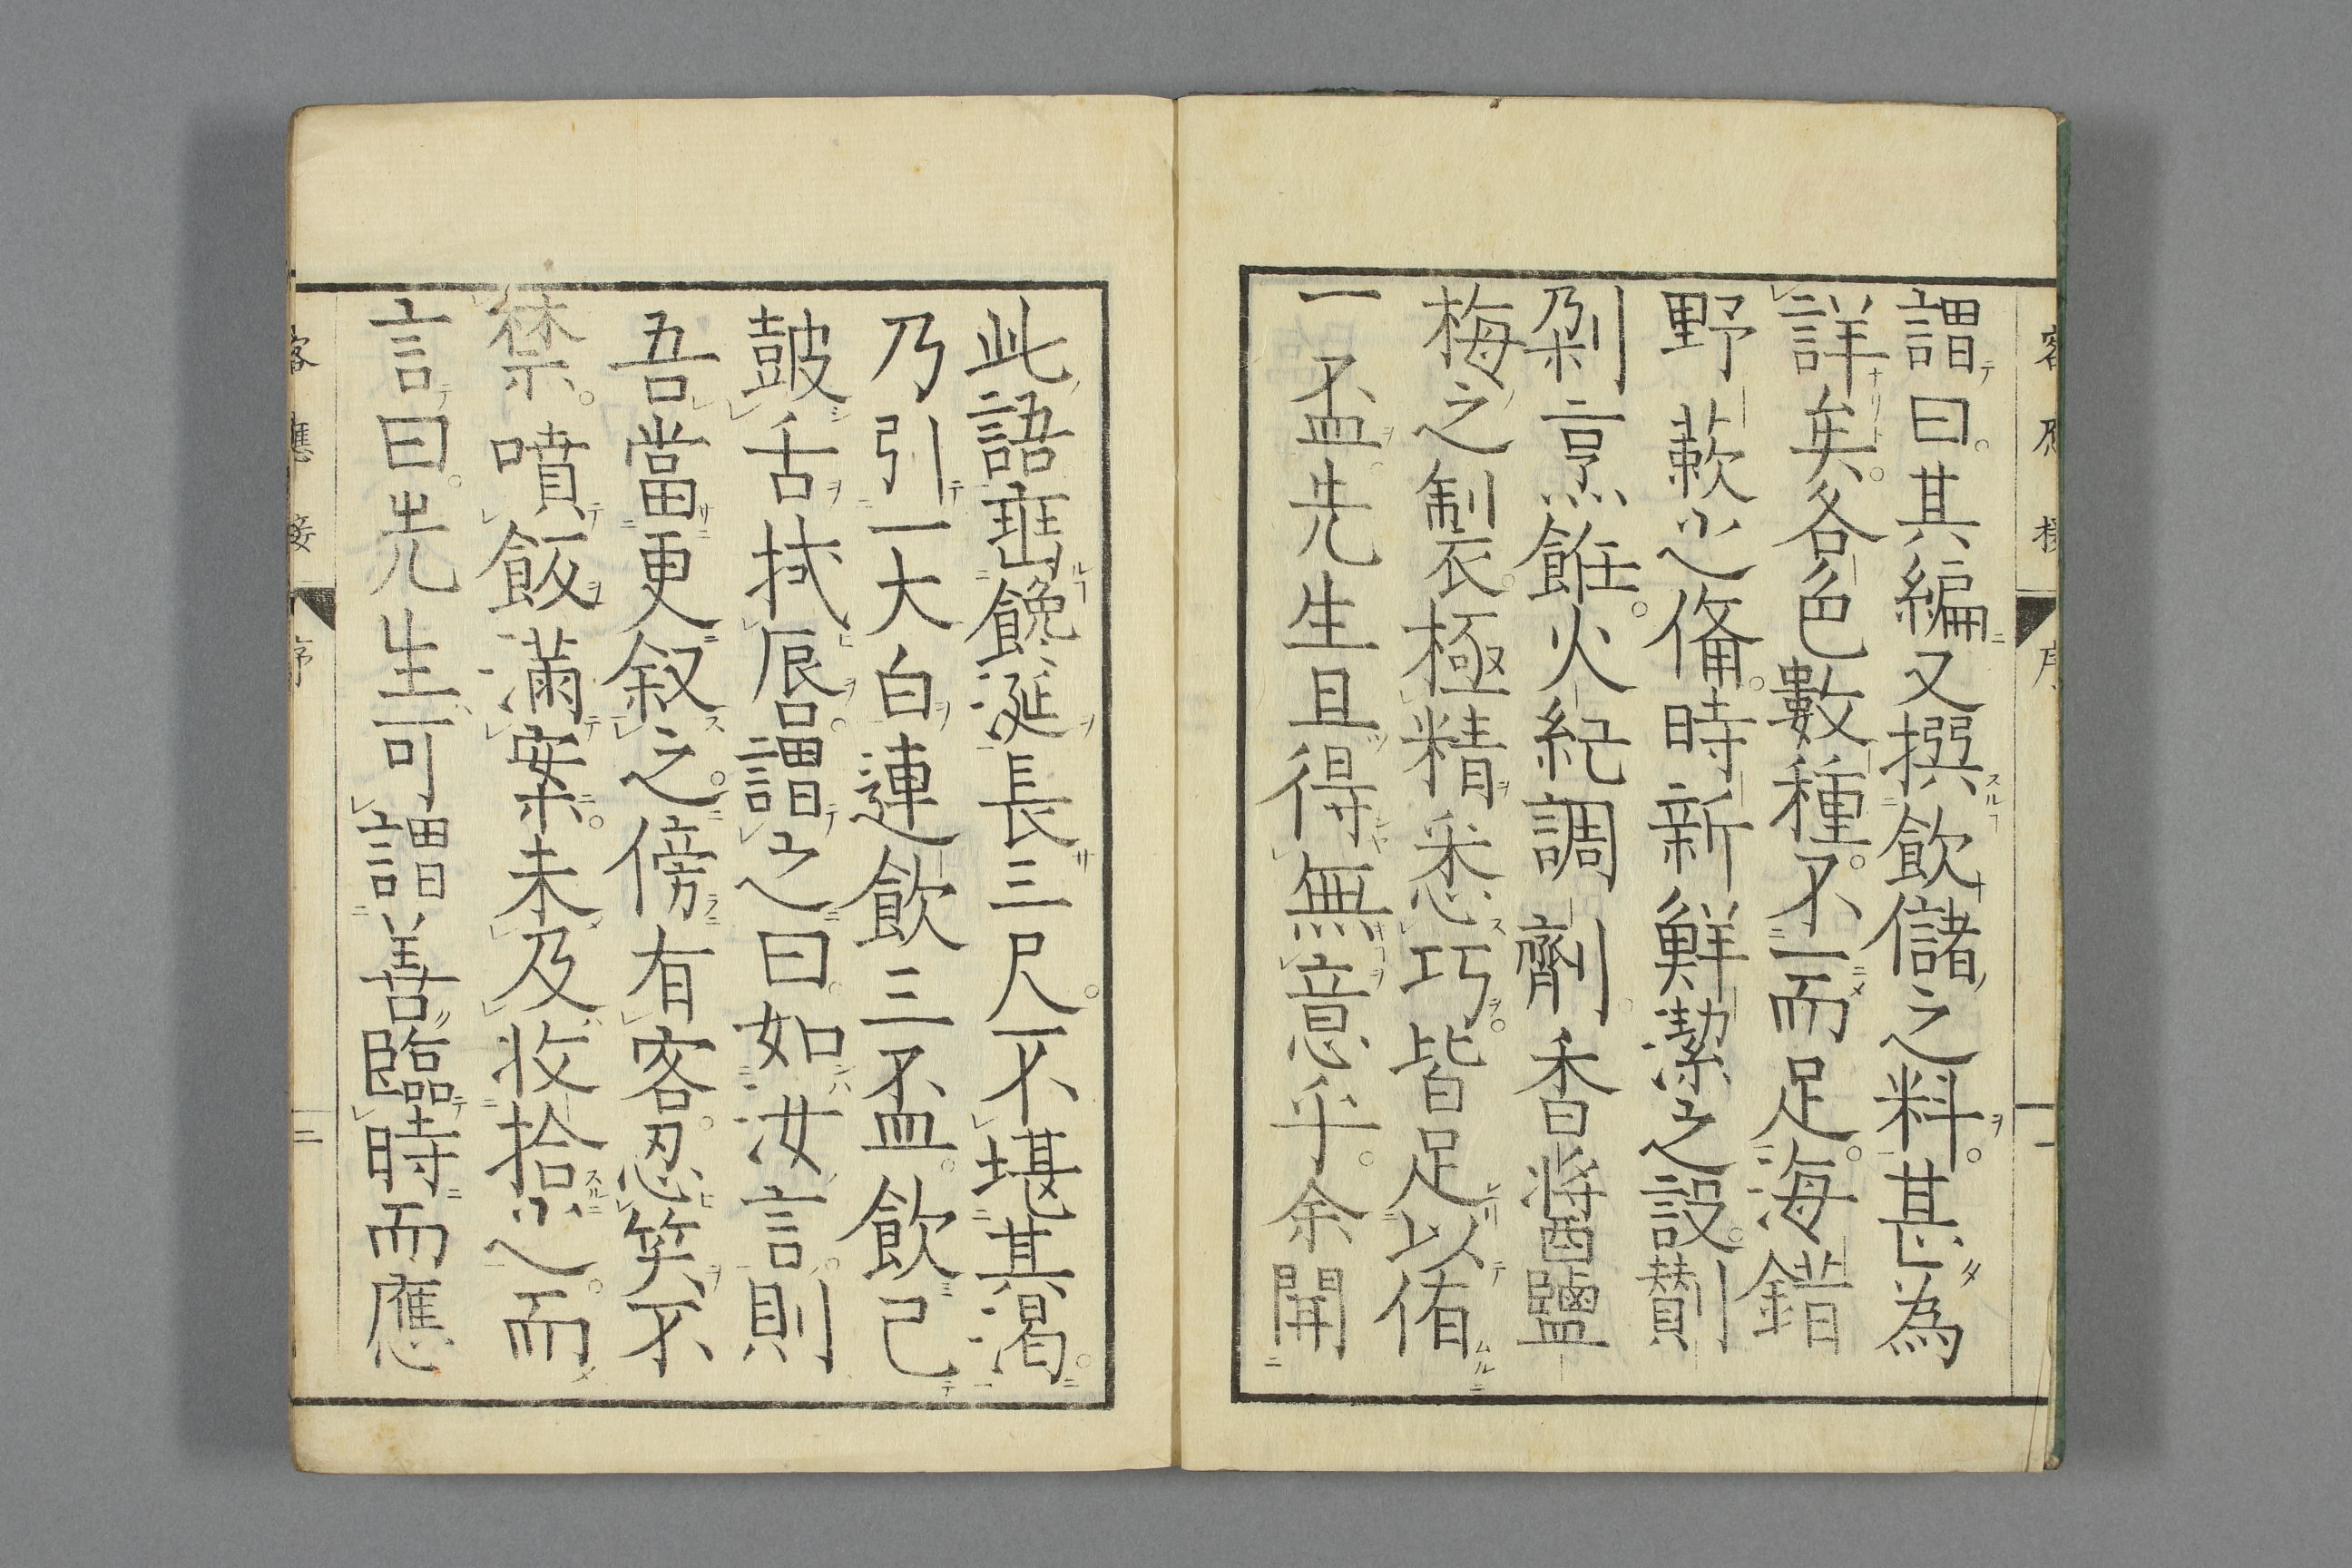 謂曰。其編又撰飲儲之料。甚為
詳矣。各色數種。不一而足。海錯
野蔌之俻。時新鮮潔之設。劗
剁烹飪。火紀調劑。香醬鹽
梅之製。極精悉巧。皆足以侑
一盃。先生且得無意乎。余聞
此語垂饞涎長三尺。不堪其渴。
乃引一大白連飲三盃。飲已
鼓舌拭脣。謂之曰。如汝言。則
吾當更叙之。傍有客。忍笑不
禁。噴飯滿案。未及收拾之。而
言曰。先生可謂善臨時而應
客應接
序
二